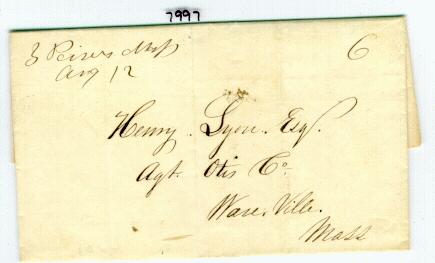 7997
3 Rivers Ms
Aug 12
6
Henry Lyon. Esq.
Agt. Otis Co
Ware. Ville.
Mass